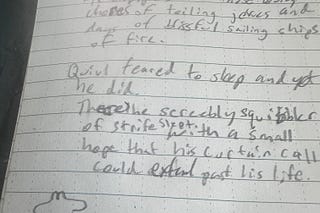 chores of toiling jokes and
days of blissful sailing ships
of fire.
Quivl feared to sleep and yet
he did.
There he screebly squibbler
of strife slept with a small
hope that his curtain call
could extend past his life.